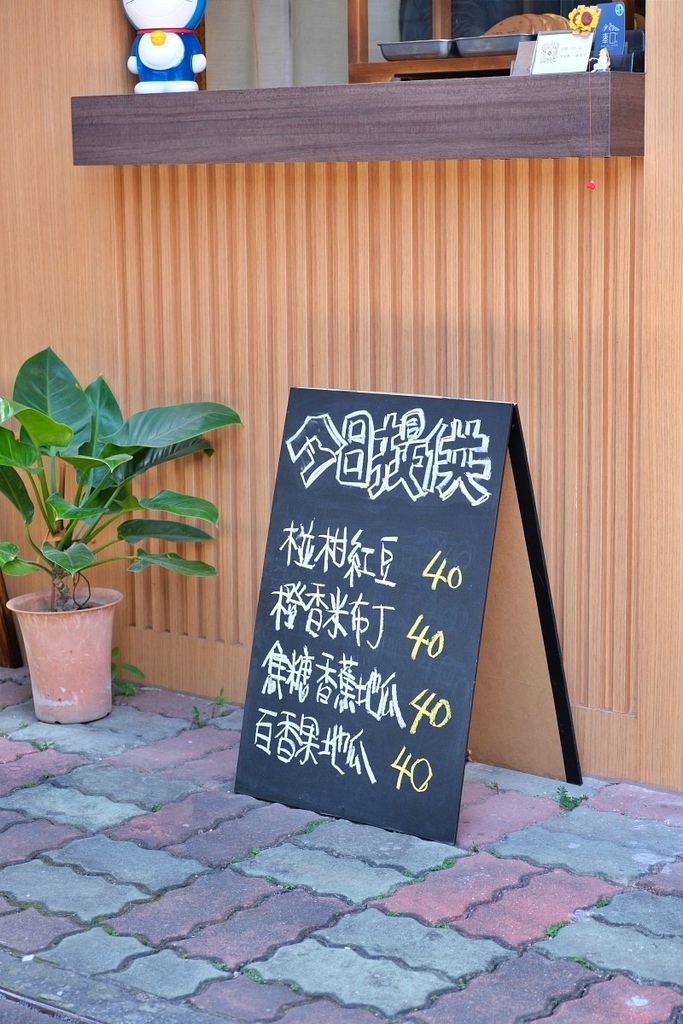 今日提供
椪柑紅豆 40
橙香米布丁 40
焦糖香蕉地瓜 40
百香果地瓜 40